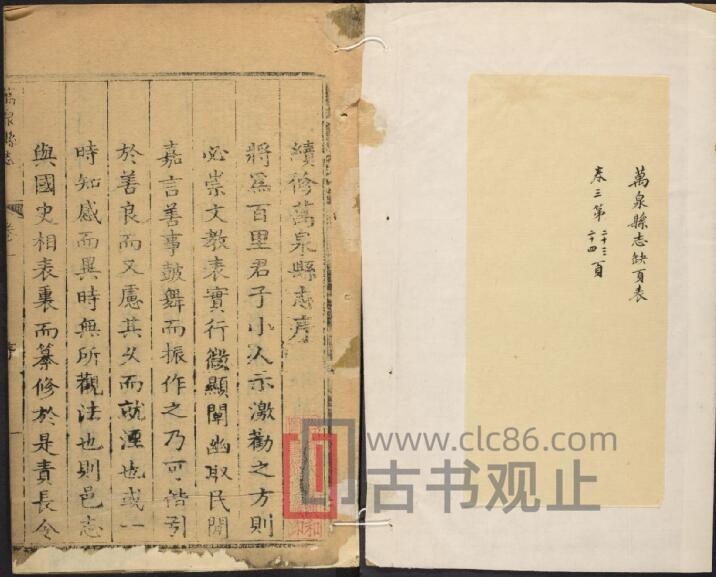 萬泉縣志缺頁表
卷三第二十三二十四頁
續修萬泉縣志序
將爲百里君子小人示激勸之方則
必崇文教表實行微顯闡幽取民間
嘉言善事鼓舞而振作之乃可偕引
於善良而又慮其久而就湮也或一
時知感而異時無所觀法也則邑志
與國史相表裏而纂修於是責長令
萬泉縣志
卷一
序
一
www.clc86.com
古书观止